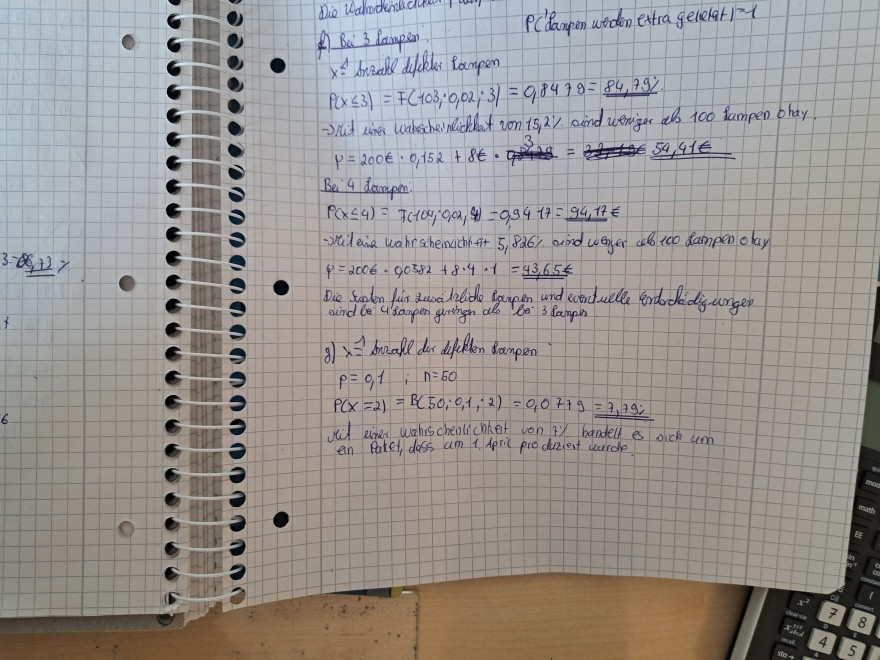 Die Wahrscheinlichkeit
P( Lampen werden extra geliefert) = 1
f) Bei 3 Lampen:
x ≙ Anzahl defekter Lampen
P(x≤3) = F(103; 0,02; 3) = 0,8479 = 84,79%
→ Mit einer Wahrscheinlichkeit von 15,2% sind weniger als 100 Lampen okay.
μ = 200€ · 0,152 + 8€ · 3 = 54,41€
Bei 4 Lampen:
P(x≤4) = F(104; 0,02; 4) = 0,9417 = 94,17€
→ Mit eine Wahrscheinlichkeit 5,826% sind weniger als 100 Lampen okay
μ = 200€ · 0,0582 + 8 · 4 · 1 = 43,65€
Die Kosten für zusätzliche Lampen und eventuelle Entschädigungen
sind bei 4 Lampen geringer als bei 3 Lampen.
g) x ≙ Anzahl der defekten Lampen
p = 0,1 ; n = 50
P(x = 2) = B(50; 0,1; 2) = 0,0779 = 7,79%
Mit einer Wahrschenlichkeit von 7% handelt es sich um
ein Paket, dass am 1. April produziert wurde.
3 = 73 %
6
mod
math
EE
x²
7
8
4
5
sto→